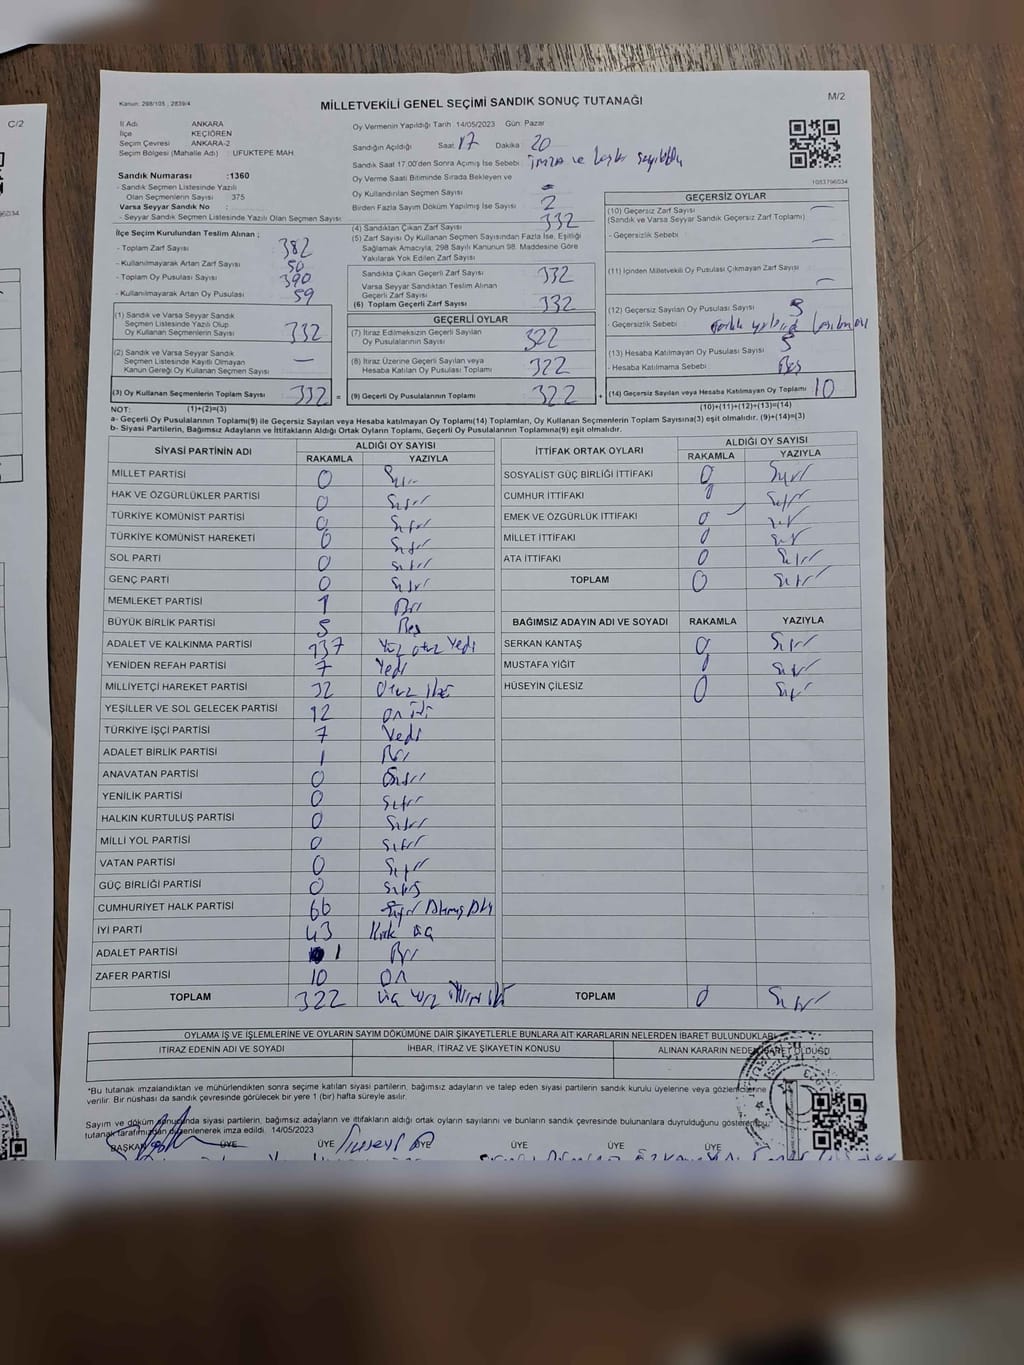 C/2
Kanun: 298/105 , 2839/4
MİLLETVEKİLİ GENEL SEÇİMİ SANDIK SONUÇ TUTANAĞI
M/2
İl Adı ANKARA
İlçe KEÇİÖREN
Seçim Çevresi ANKARA-2
Seçim Bölgesi (Mahalle Adı) : UFUKTEPE MAH.
Sandık Numarası :1360
- Sandık Seçmen Listesinde Yazılı
Olan Seçmenlerin Sayısı : 375
Varsa Seyyar Sandık No :
- Seyyar Sandık Seçmen Listesinde Yazılı Olan Seçmen Sayısı:
İlçe Seçim Kurulundan Teslim Alınan ;
- Toplam Zarf Sayısı 382
- Kullanılmayarak Artan Zarf Sayısı 50
- Toplam Oy Pusulası Sayısı 390
- Kullanılmayarak Artan Oy Pusulası 59
(1) Sandık ve Varsa Seyyar Sandık
Seçmen Listesinde Yazılı Olup
Oy Kullanan Seçmenlerin Sayısı 332
(2) Sandık ve Varsa Seyyar Sandık
Seçmen Listesinde Kayıtlı Olmayan
Kanun Gereği Oy Kullanan Seçmen Sayısı —
(3) Oy Kullanan Seçmenlerin Toplam Sayısı 332 =
Oy Vermenin Yapıldığı Tarih : 14/05/2023 Gün: Pazar
Sandığın Açıldığı Saat 17 Dakika 20
Sandık Saat 17.00'den Sonra Açılmış İse Sebebi : imza ve
Oy Verme Saati Bitiminde Sırada Bekleyen ve
Oy Kullandırılan Seçmen Sayısı -
Birden Fazla Sayım Döküm Yapılmış İse Sayısı : 2
(4) Sandıktan Çıkan Zarf Sayısı 332
(5) Zarf Sayısı Oy Kullanan Seçmen Sayısından Fazla İse, Eşitliği
Sağlamak Amacıyla; 298 Sayılı Kanunun 98. Maddesine Göre
Yakılarak Yok Edilen Zarf Sayısı
Sandıkta Çıkan Geçerli Zarf Sayısı 332
Varsa Seyyar Sandıktan Teslim Alınan
Geçerli Zarf Sayısı
(6) Toplam Geçerli Zarf Sayısı 332
GEÇERLİ OYLAR
(7) İtiraz Edilmeksizin Geçerli Sayılan
Oy Pusulası Sayısı 322
(8) İtiraz Üzerine Geçerli Sayılan veya
Hesaba Katılan Oy Pusulası Toplamı 322
(9) Geçerli Oy Pusulalarının Toplamı 322 +
1083796034
GEÇERSİZ OYLAR
(10) Geçersiz Zarf Sayısı —
(Sandık ve Varsa Seyyar Sandık Geçersiz Zarf Toplamı)
- Geçersizlik Sebebi : —
(11) İçinden Milletvekili Oy Pusulası Çıkmayan Zarf Sayısı —
(12) Geçersiz Sayılan Oy Pusulası Sayısı 5
- Geçersizlik Sebebi
(13) Hesaba Katılmayan Oy Pusulası Sayısı 5
- Hesaba Katılmama Sebebi Beş
(14) Geçersiz Sayılan veya Hesaba Katılmayan Oy Toplamı 10
NOT: (1)+(2)=(3) (10)+(11)+(12)+(13)=(14)
a- Geçerli Oy Pusulalarının Toplamı(9) ile Geçersiz Sayılan veya Hesaba katılmayan Oy Toplamı(14) Toplamları, Oy Kullanan Seçmenlerin Toplam Sayısına(3) eşit olmalıdır. (9)+(14)=(3)
b- Siyasi Partilerin, Bağımsız Adayların ve İttifakların Aldığı Ortak Oyların Toplamı, Geçerli Oy Pusulalarının Toplamına(9) eşit olmalıdır.
SİYASİ PARTİNİN ADI ALDIĞI OY SAYISI
RAKAMLA YAZIYLA
MİLLET PARTİSİ 0 Sıfır
HAK VE ÖZGÜRLÜKLER PARTİSİ 0 Sıfır
TÜRKİYE KOMÜNİST PARTİSİ 0 Sıfır
TÜRKİYE KOMÜNİST HAREKETİ 0 Sıfır
SOL PARTİ 0 Sıfır
GENÇ PARTİ 0 Sıfır
MEMLEKET PARTİSİ 1 Bir
BÜYÜK BİRLİK PARTİSİ 5 Beş
ADALET VE KALKINMA PARTİSİ 137 Yüz otuz Yedi
YENİDEN REFAH PARTİSİ 7 Yedi
MİLLİYETÇİ HAREKET PARTİSİ 32 Otuz iki
YEŞİLLER VE SOL GELECEK PARTİSİ 12 on iki
TÜRKİYE İŞÇİ PARTİSİ 7 Yedi
ADALET BİRLİK PARTİSİ 1 Bir
ANAVATAN PARTİSİ 0 Sıfır
YENİLİK PARTİSİ 0 Sıfır
HALKIN KURTULUŞ PARTİSİ 0 Sıfır
MİLLİ YOL PARTİSİ 0 Sıfır
VATAN PARTİSİ 0 Sıfır
GÜÇ BİRLİĞİ PARTİSİ 0 Sıfır
CUMHURİYET HALK PARTİSİ 66 Altmış Altı
İYİ PARTİ 43 Kırk üç
ADALET PARTİSİ 1 Bir
ZAFER PARTİSİ 10 On
TOPLAM 322 üç yüz iki
İTTİFAK ORTAK OYLARI ALDIĞI OY SAYISI
RAKAMLA YAZIYLA
SOSYALİST GÜÇ BİRLİĞİ İTTİFAKI 0 Sıfır
CUMHUR İTTİFAKI 0 Sıfır
EMEK VE ÖZGÜRLÜK İTTİFAKI 0 Sıfır
MİLLET İTTİFAKI 0 Sıfır
ATA İTTİFAKI 0 Sıfır
TOPLAM 0 Sıfır
BAĞIMSIZ ADAYIN ADI VE SOYADI RAKAMLA YAZIYLA
SERKAN KANTAŞ 0 Sıfır
MUSTAFA YİĞİT 0 Sıfır
HÜSEYİN ÇİLESİZ 0 Sıfır
TOPLAM 0 Sıfır
OYLAMA İŞ VE İŞLEMLERİNE VE OYLARIN SAYIM DÖKÜMÜNE DAİR ŞİKAYETLERLE BUNLARA AİT KARARLARIN NELERDEN İBARET BULUNDUKLARI
İTİRAZ EDENİN ADI VE SOYADI İHBAR, İTİRAZ VE ŞİKAYETİN KONUSU ALINAN KARARIN NEDEN İBARET OLDUĞU
*Bu tutanak imzalandıktan ve mühürlendikten sonra seçime katılan siyasi partilerin, bağımsız adayların ve talep eden siyasi partilerin sandık kurulu üyelerine veya gözlemcilerine
verilir. Bir nüshası da sandık çevresinde görülecek bir yere 1 (bir) hafta süreyle asılır.
Sayım ve döküm sonucunda siyasi partilerin, bağımsız adayların ve ittifakların aldığı ortak oyların sayılarını ve bunların sandık çevresinde bulunanlara duyrulduğunu gösteren bu
tutanak tarafımızdan düzenlenerek imza edildi. 14/05/2023
BAŞKAN ÜYE ÜYE ÜYE ÜYE ÜYE ÜYE